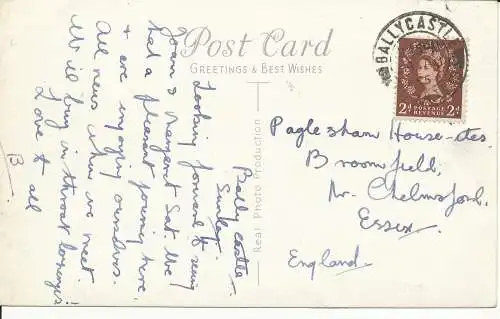 Post Card
GREETINGS & BEST WISHES
BALLYCASTLE
2d POSTAGE REVENUE 2d
Real Photo Production
Ballycastle
Sunday.
Looking forward to seeing
Joan & Margaret Sat. We
had a pleasant journey here
& are enjoying ourselves.
All news when we meet.
We'll bring in throat lozenges!
Love to all
B.
Paglesham House-ctes.
Broomfield,
Nr. Chelmsford,
Essex.
England.